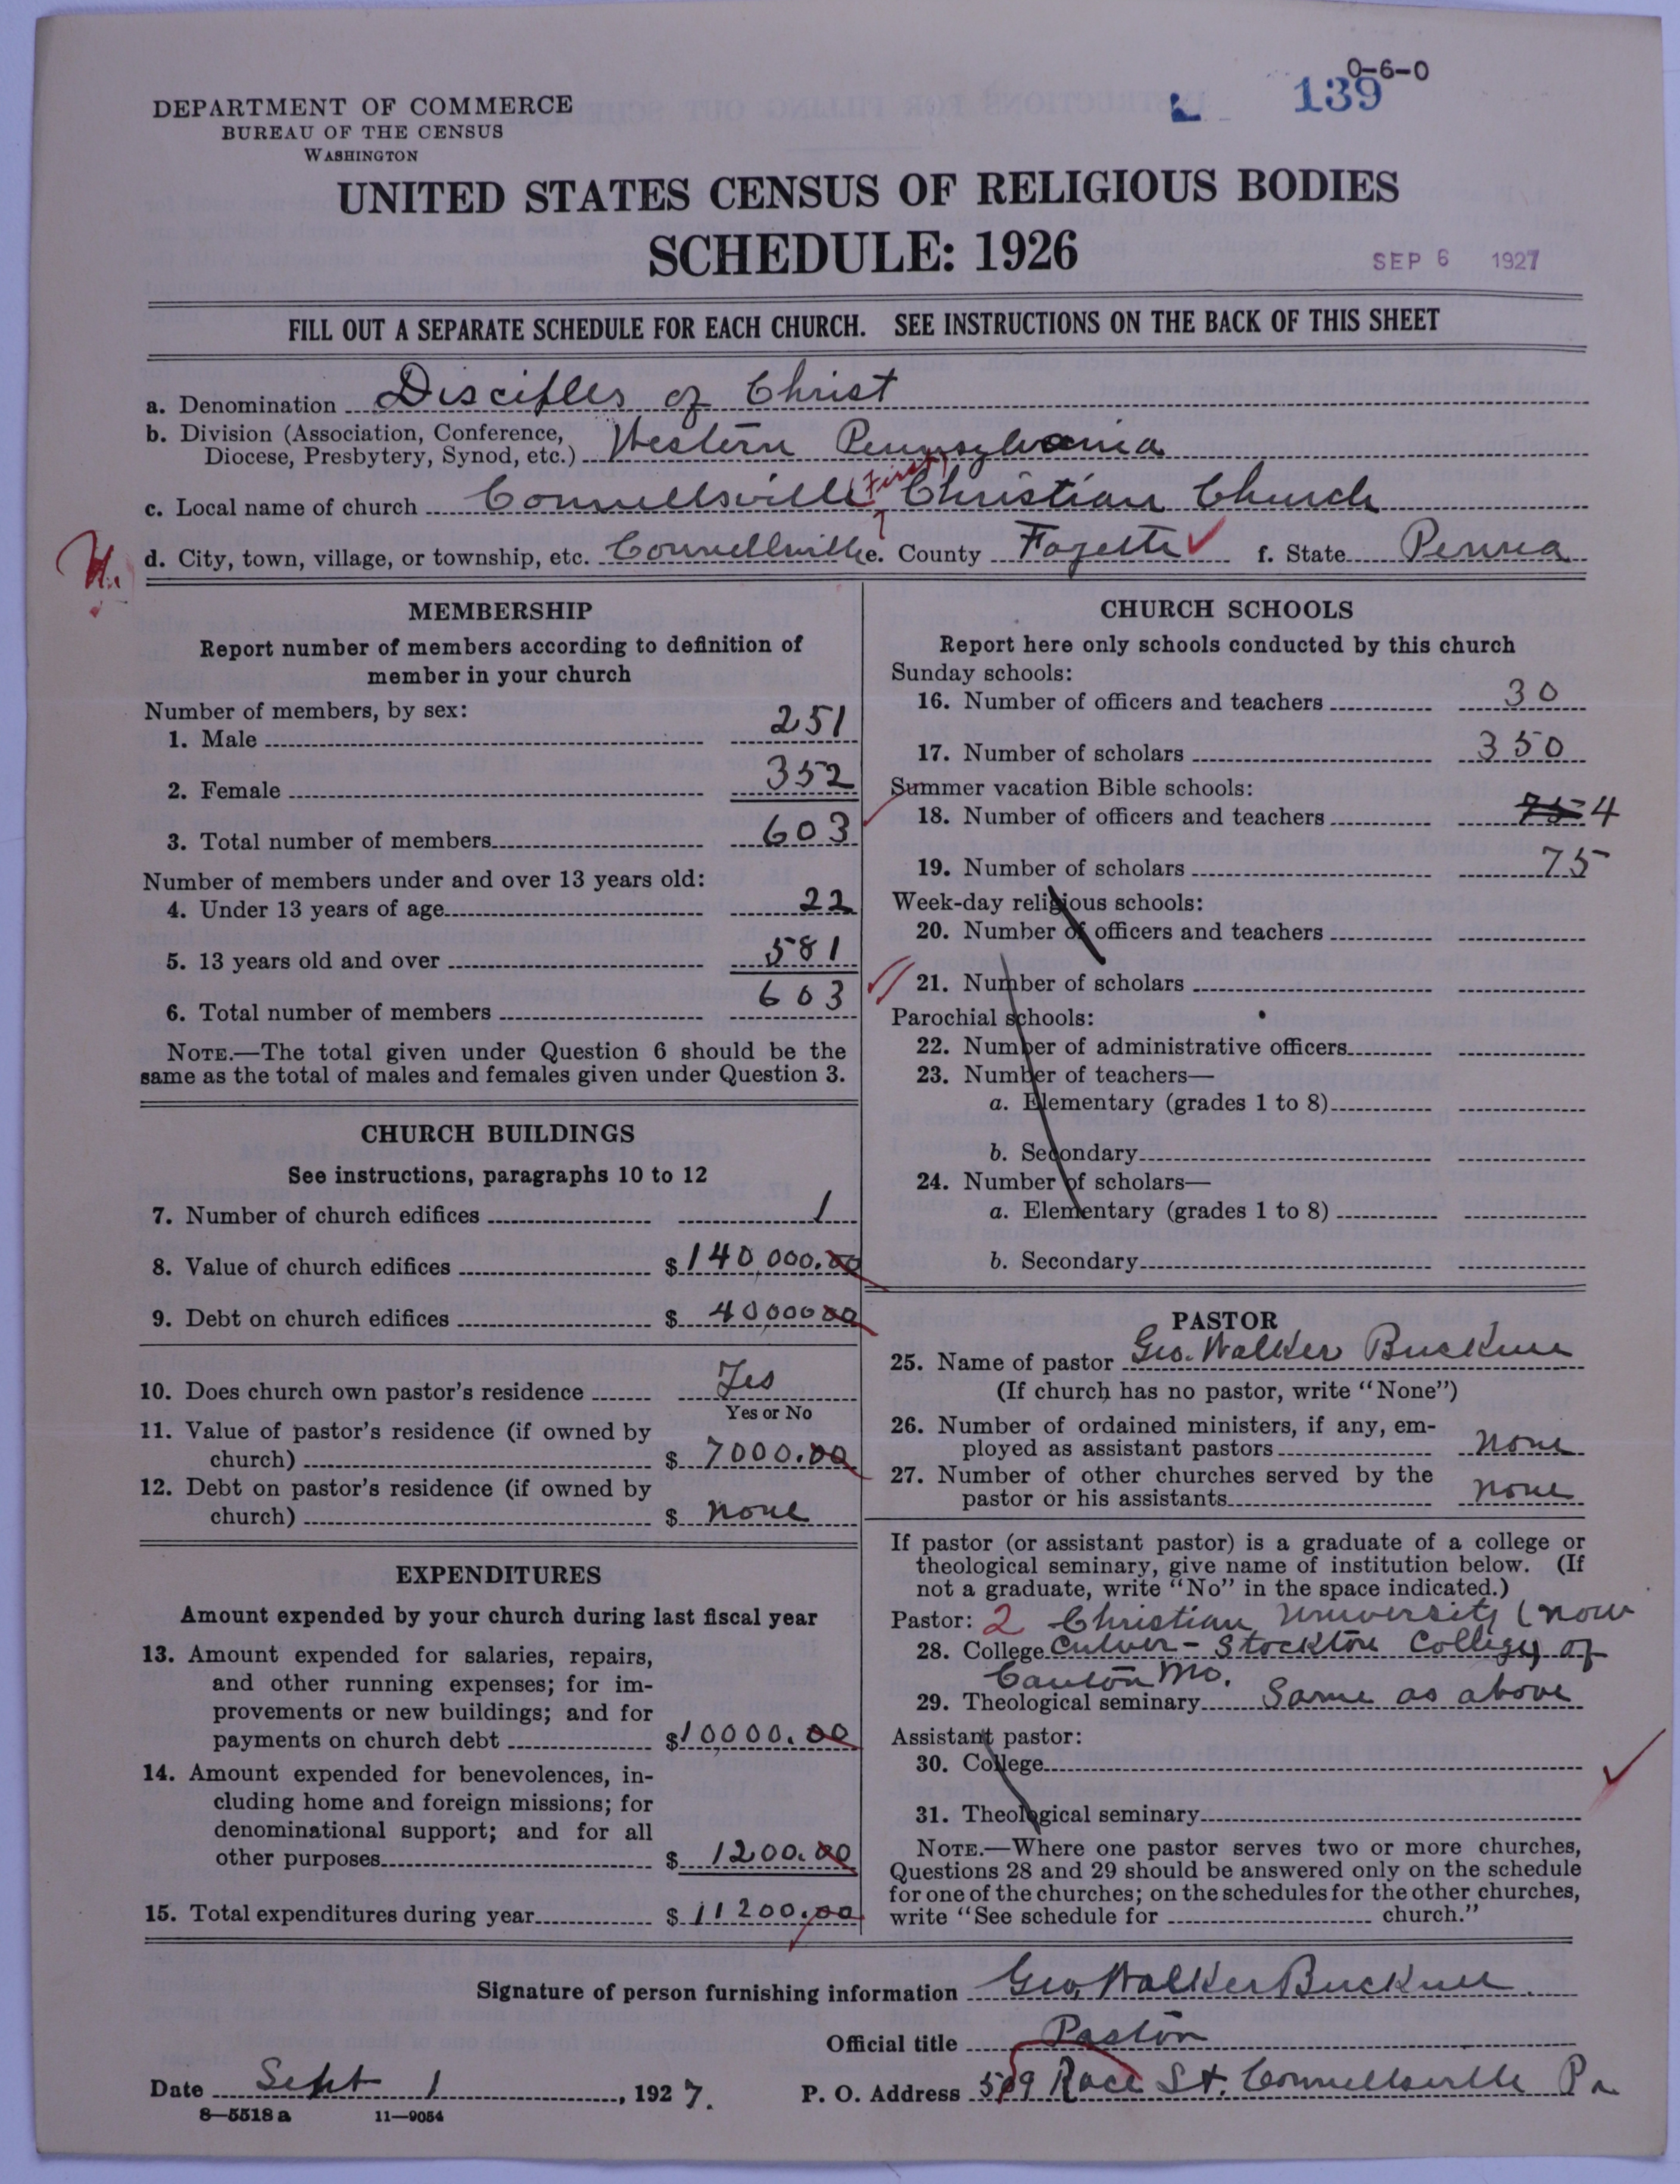 0-6-0
L 139
DEPARTMENT OF COMMERCE
BUREAU OF THE CENSUS
WASHINGTON
UNITED STATES CENSUS OF RELIGIOUS BODIES
SCHEDULE: 1926
SEP 6 1927
FILL OUT A SEPARATE SCHEDULE FOR EACH CHURCH. SEE INSTRUCTIONS ON THE BACK OF THIS SHEET
a. Denomination Disciples of Christ
b. Division (Association, Conference, Diocese, Presbytery, Synod, etc.) Western Pennsylvania
c. Local name of church Connellsville (First) Christian Church
d. City, town, village, or township, etc. Connellsville e. County Fayette f. State Penna
MEMBERSHIP
Report number of members according to definition of
member in your church
Number of members, by sex:
1. Male 251
2. Female 352
3. Total number of members 603
Number of members under and over 13 years old:
4. Under 13 years of age 22
5. 13 years old and over 581
6. Total number of members 603
NOTE.—The total given under Question 6 should be the
same as the total of males and females given under Question 3.
CHURCH BUILDINGS
See instructions, paragraphs 10 to 12
7. Number of church edifices 1
8. Value of church edifices $140,000.00
9. Debt on church edifices $ 40,00000
10. Does church own pastor's residence Yes
Yes or No
11. Value of pastor's residence (if owned by
church) $ 7000.00
12. Debt on pastor's residence (if owned by
church) $ none
EXPENDITURES
Amount expended by your church during last fiscal year
13. Amount expended for salaries, repairs,
and other running expenses; for im-
provements or new buildings; and for
payments on church debt $10000.00
14. Amount expended for benevolences, in-
cluding home and foreign missions; for
denominational support; and for all
other purposes $ 1200.00
15. Total expenditures during year $ 11200.00
CHURCH SCHOOLS
Report here only schools conducted by this church
Sunday schools:
16. Number of officers and teachers 30
17. Number of scholars 350
Summer vacation Bible schools:
18. Number of officers and teachers 75 4
19. Number of scholars 75
Week-day religious schools:
20. Number of officers and teachers
21. Number of scholars
Parochial schools:
22. Number of administrative officers
23. Number of teachers—
a. Elementary (grades 1 to 8)
b. Secondary
24. Number of scholars—
a. Elementary (grades 1 to 8)
b. Secondary
PASTOR
25. Name of pastor Geo. Walker Buckner
(If church has no pastor, write "None")
26. Number of ordained ministers, if any, em-
ployed as assistant pastors none
27. Number of other churches served by the
pastor or his assistants none
If pastor (or assistant pastor) is a graduate of a college or
theological seminary, give name of institution below. (If
not a graduate, write "No" in the space indicated.)
Pastor: 2 Christian University (now
28. College Culver-Stockton College) of
Canton Mo.
29. Theological seminary Same as above
Assistant pastor:
30. College
31. Theological seminary
NOTE.—Where one pastor serves two or more churches,
Questions 28 and 29 should be answered only on the schedule
for one of the churches; on the schedules for the other churches,
write "See schedule for church."
Signature of person furnishing information Geo. Walker Buckner
Official title Pastor
Date Sept 1, 1927. P. O. Address 509 Race St. Connellsville Pa
8—5518 a 11—9054